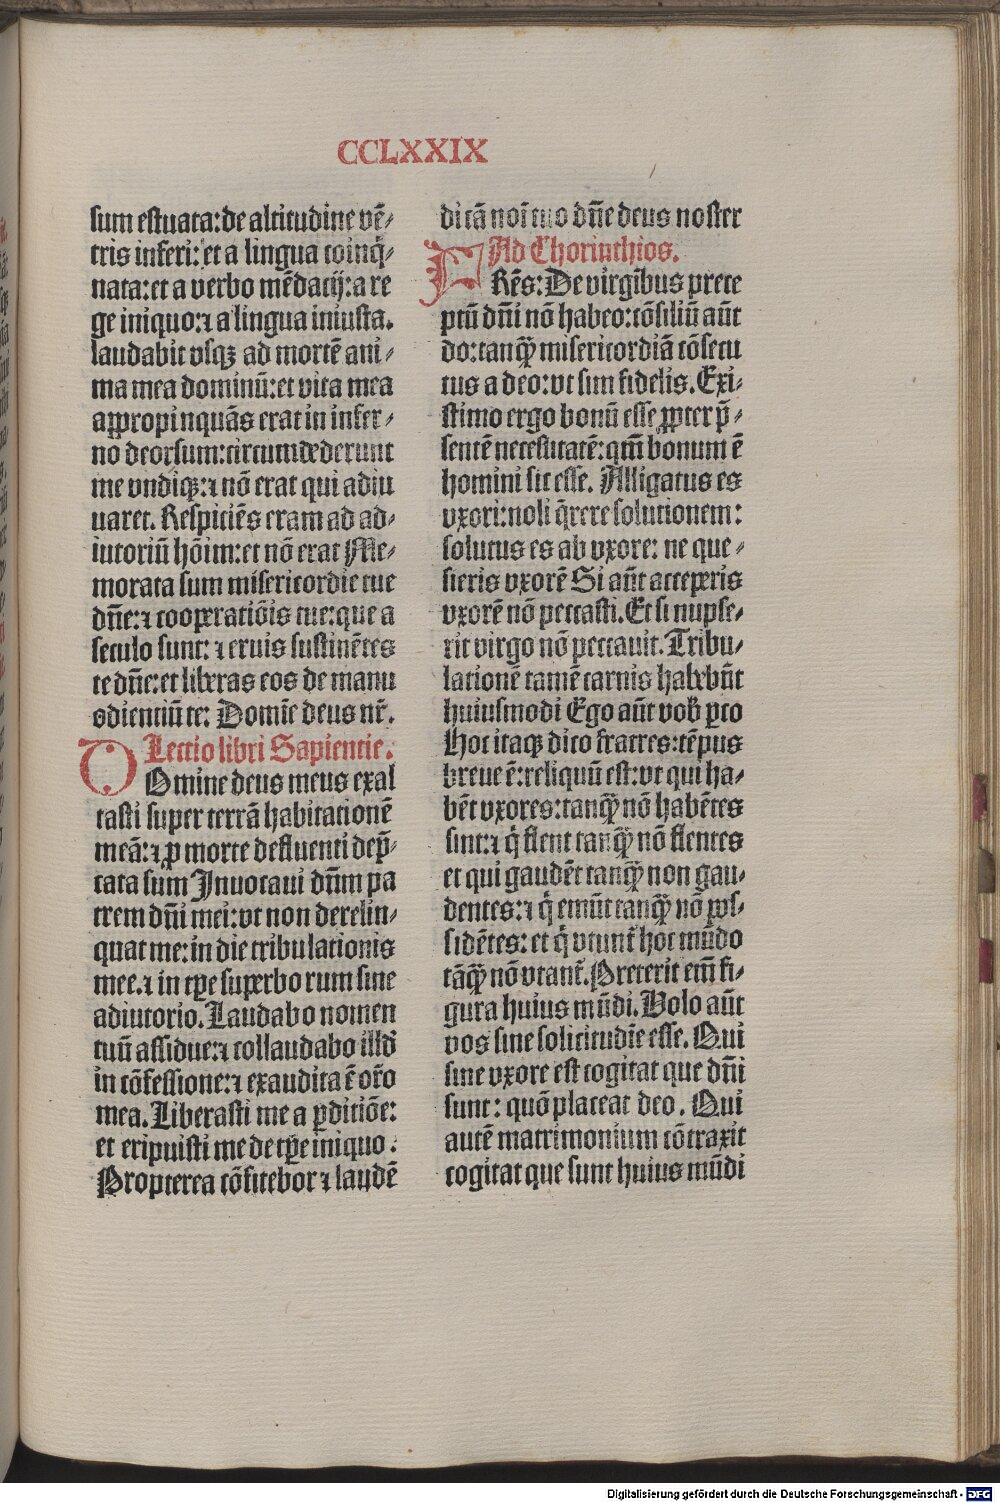 CCLXXIX
sum estuata: de altitudine vẽ⸗
tris inferi: et a lingua coinq̃⸗
nata: et a verbo mẽdacij: a re
ge iniquo: ⁊ a lingua iniusta.
laudabit vsqꝫ ad mortẽ ani⸗
ma mea dominũ: et vita mea
aꝓpropinquãs erat in infer⸗
no deorsum: circumdederunt
me vndiqꝫ: ⁊ nõ erat qui adiu
uaret. Respiciẽs eram ad ad⸗
iutoriũ hõim: et nõ erat Me⸗
morata sum misericordie tue
dñe: ⁊ cooperatiõis tue: que a
seculo sunt: ⁊ eruis sustinẽtes
te dñe: et liberas eos de manu
odientiũ te: Domiẽ deus nr̃.
Lectio libri Sapientie.
DOmine deus meus exal
tasti super terrã habitationẽ
meã: ⁊ ꝓ morte defluenti dep̃⸗
cata sum Inuocaui dñm pa
trem dñi mei: vt non derelin⸗
quat me: in die tribulationis
mee. ⁊ in tꝑe superborum sine
adiutorio. Laudabo nomen
tuũ assidue: ⁊ collaudabo illð
in cõfessione: ⁊ exaudita ẽ or̃o
mea. Liberasti me a ꝑditiõe:
et eripuisti me de tꝑe iniquo:
Propterea cõfitebor ⁊ laudẽ
dicã noĩ tuo dñe deus noster
Ad Chorinthios.
FRẽs: De virgĩbus prece
ptũ dñi nõ habeo: cõsiliũ aũt
do: tanqȝ̃ misericordiã cõsecu
tus a deo: vt sim fidelis. Exi⸗
stimo ergo bonũ esse ꝓpter p̃⸗
sentẽ necessitatẽ: qm̃ bonum ẽ
homini sic esse. Alligatus es
vxori: noli q̃rere solutionem:
solutus es ab vxore: ne que⸗
sieris vxorẽ Si aũt acceperis
vxorẽ nõ peccasti. Et si nupse⸗
rit virgo nõ peccauit. Tribu⸗
lationẽ tamẽ carnis habebũt
huiusmodi Ego aũt vob̃ ꝑco
Hoc itaqꝫ dico fratres: tẽpus
breue ẽ: reliquũ est: vt qui ha⸗
bẽt vxores: tanqȝ̃ nõ habẽtes
sint: ⁊ q̇ flent tanqȝ̃ nõ flentes
et qui gaudẽt tanqȝ̃ non gau⸗
dentes: ⁊ q̇ emũt tanqȝ̃ nõ pos⸗
sidẽtes: et q̇ vtunt̃ hoc mũdo
tãqȝ̃ nõ vtant̃. Preterit em̃ fi⸗
gura huius mũdi. Volo aũt
vos sine solicitudĩe esse. Qui
sine vxore est cogitat que dñi
sunt: quõ placeat deo. Qui
autẽ matrimonium cõtraxit
cogitat que sunt huius mũdi
Digitalisierung gefördert durch die Deutsche Forschungsgemeinschaft - DFG